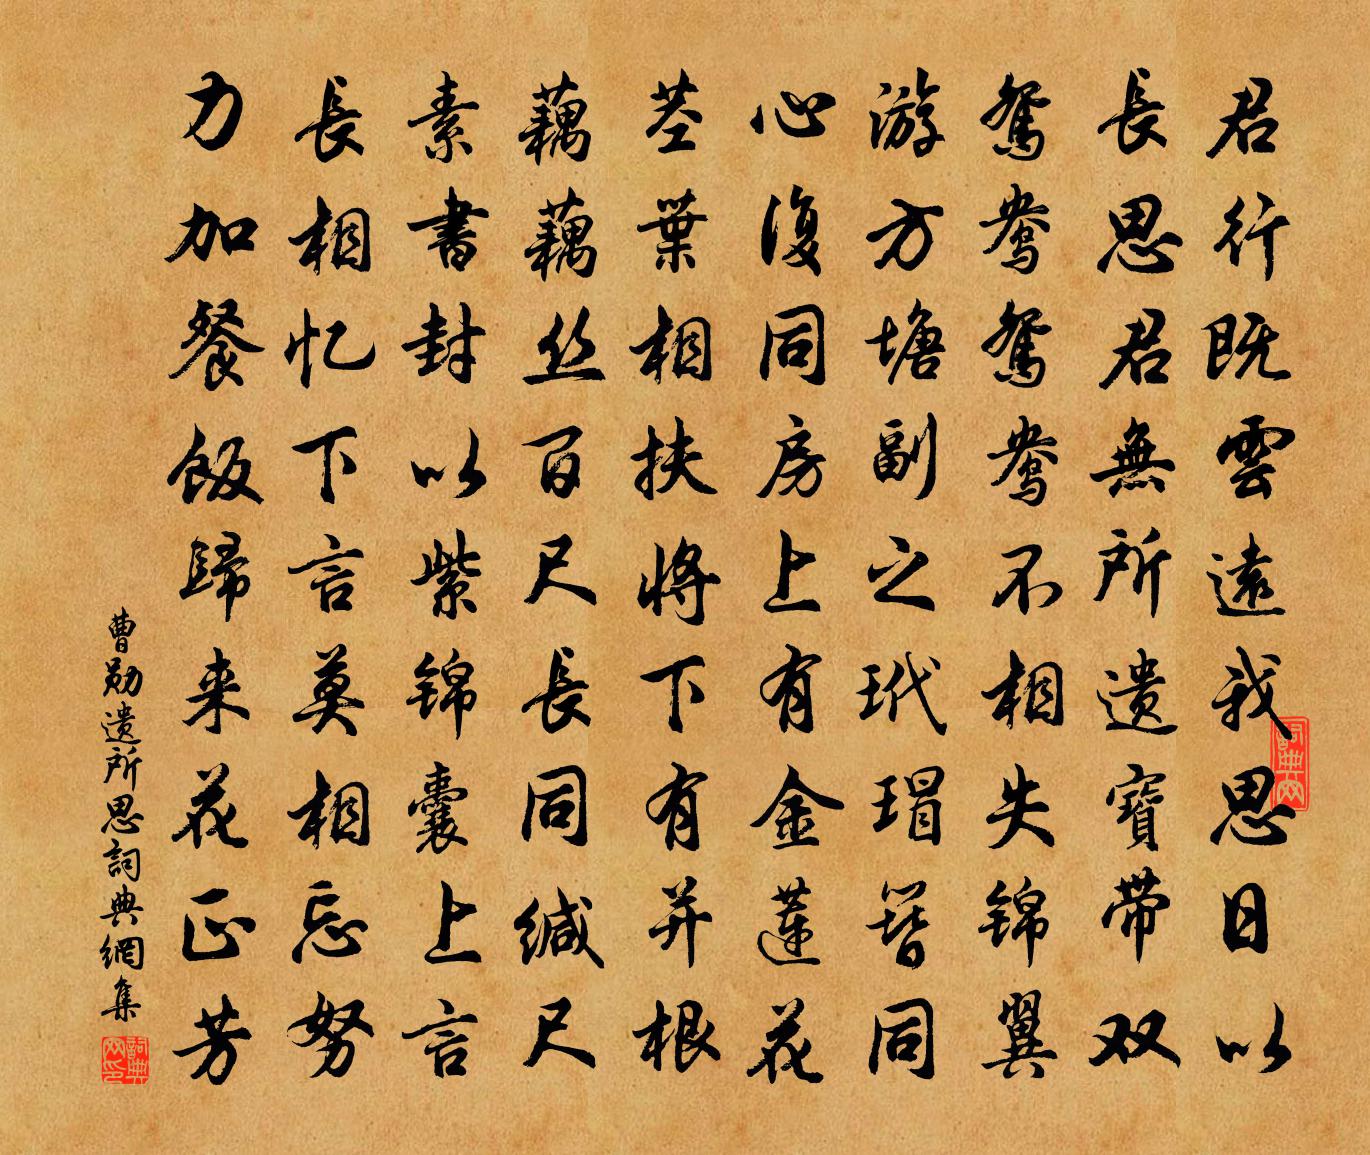 君行既雲遠我思日以
長思君無所遺寶帶双
鴛鴦鴛鴦不相失錦翼
游方塘副之玳瑁簪同
心復同房上有金蓮花
茎葉相扶將下有并根
藕藕丝百尺長同緘尺
素書封以紫錦囊上言
長相忆下言莫相忘努
力加餐飯歸来花正芳
曹勛遺所思詞典網集
詞典网
詞典网印